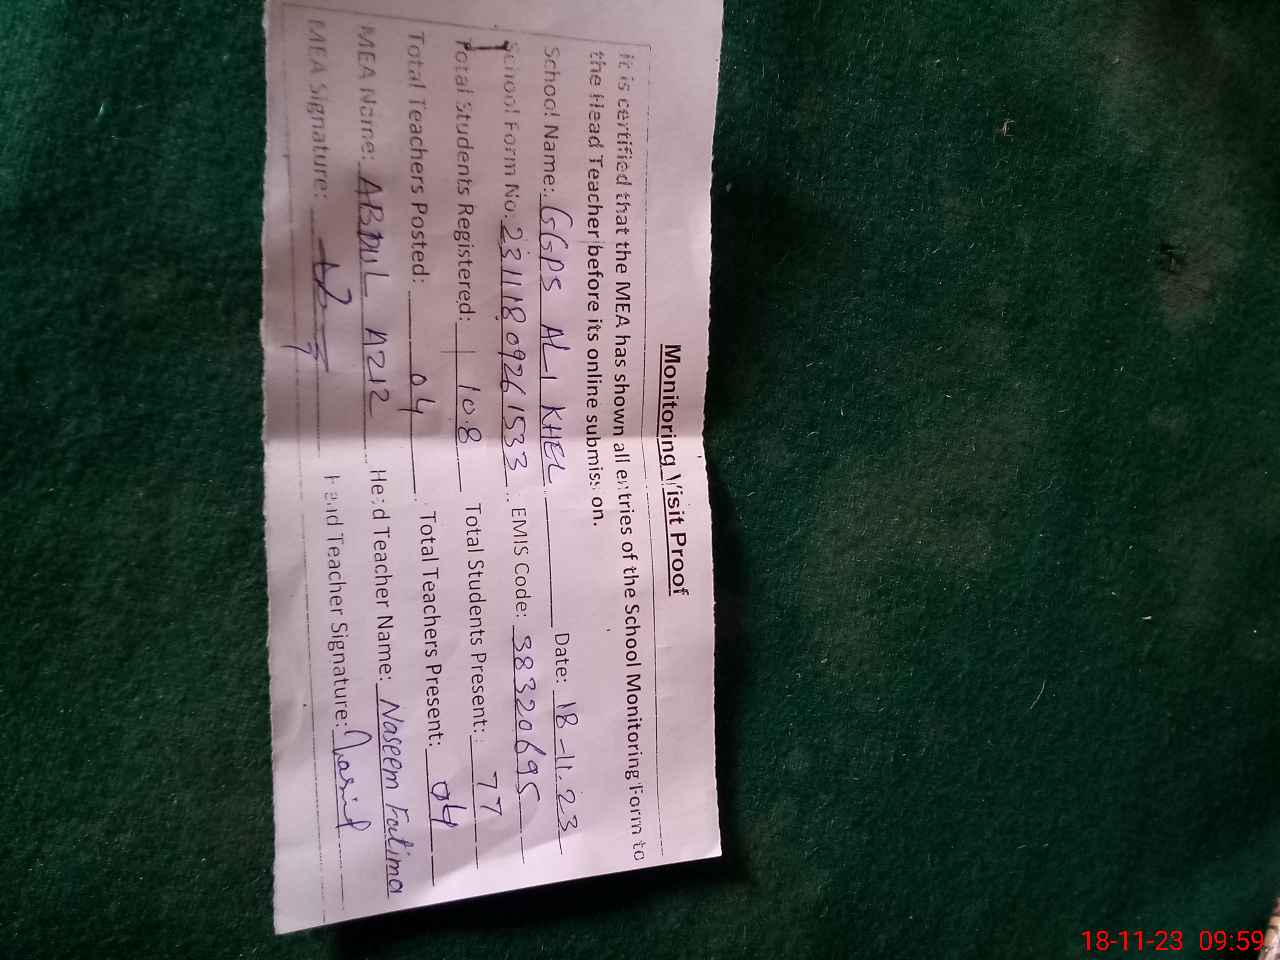 Monitoring Visit Proof
It is certified that the MEA has shown all entries of the School Monitoring Form to
the Head Teacher before its online submission.
School Name: GGPS ALI KHEL Date: 18-11-23
School Form No. 231118 0926 1533 EMIS Code: 38320695
Total Students Registered: 108 Total Students Present: 77
Total Teachers Posted: 04 Total Teachers Present: 04
MEA Name: ABDUL AZIZ Head Teacher Name: Naseem Fatima
MEA Signature: Head Teacher Signature:
18-11-23 09:59